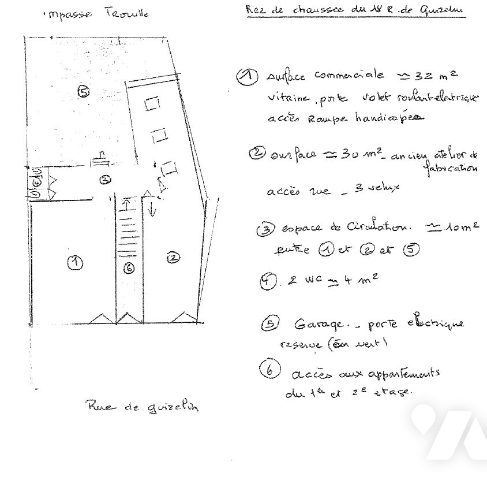 impasse Trouille
Rez de chaussée du 18 R. de Guizelin
① surface commerciale ≃ 32 m²
vitrine, porte volet roulant électrique
accès Rampe handicapée
② surface ≃ 30 m² - ancien atelier de
fabrication
accès rue - 3 velux
③ espace de Circulation. ≃ 10 m²
entre ① et ② et ⑤
④. 2 WC ≃ 4 m²
⑤ Garage. - porte électrique
reserve (en vert)
⑥ accès aux appartements
du 1er et 2e etage.
⑤
③
①
⑥
②
Rue de guizelin